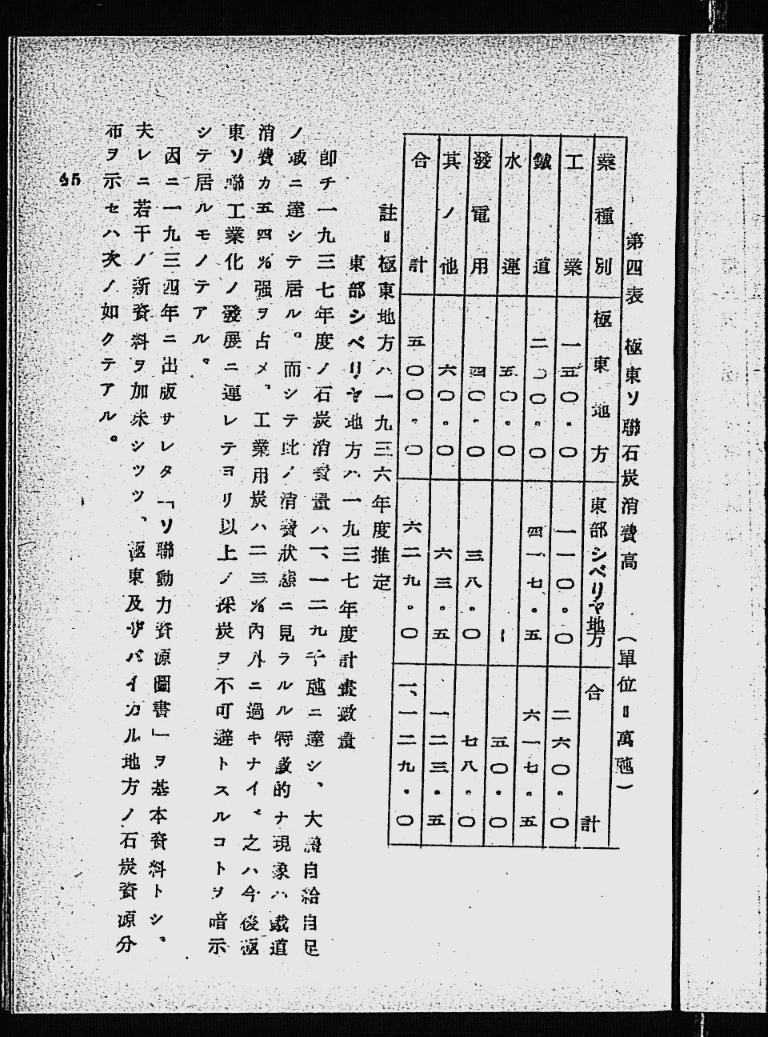 第四表 極東ソ聯石炭消費高 (單位=萬瓲)
業種別 極東地方 東部シベリヤ地方 合計
工業 一五〇・〇 一一〇・〇 二六〇・〇
鐵道 二〇〇・〇 四一七・五 六一七・五
水運 五〇・〇 ー 五〇・〇
發電用 四〇・〇 三八・〇 七八・〇
其ノ他 六〇・〇 六三・五 一二三・五
合計 五〇〇・〇 六二九・〇 一、一二九・〇
註=極東地方ハ一九三六年度推定
東部シベリヤ地方ハ一九三七年度計畫数量
卽チ一九三七年度ノ石炭消費量ハ一、一二九千瓲ニ達シ、大體自給自足
ノ域ニ達シテ居ル。而シテ此ノ消費状態ニ見ラルル特徴的ナ現象ハ鐵道
消費カ五四%强ヲ占メ、工業用炭ハ二三%內外ニ過キナイ。之ハ今後極
東ソ聯工業化ノ發展ニ連レテヨリ以上ノ採炭ヲ不可避トスルコトヲ暗示
シテ居ルモノテアル。
因ニ一九三四年ニ出版サレタ「ソ聯動力資源圖書」ヲ基本資料トシ、
夫レニ若干ノ新資料ヲ加味シツツ、極東及ザバイカル地方ノ石炭資源分
布ヲ示セハ次ノ如クテアル。
45